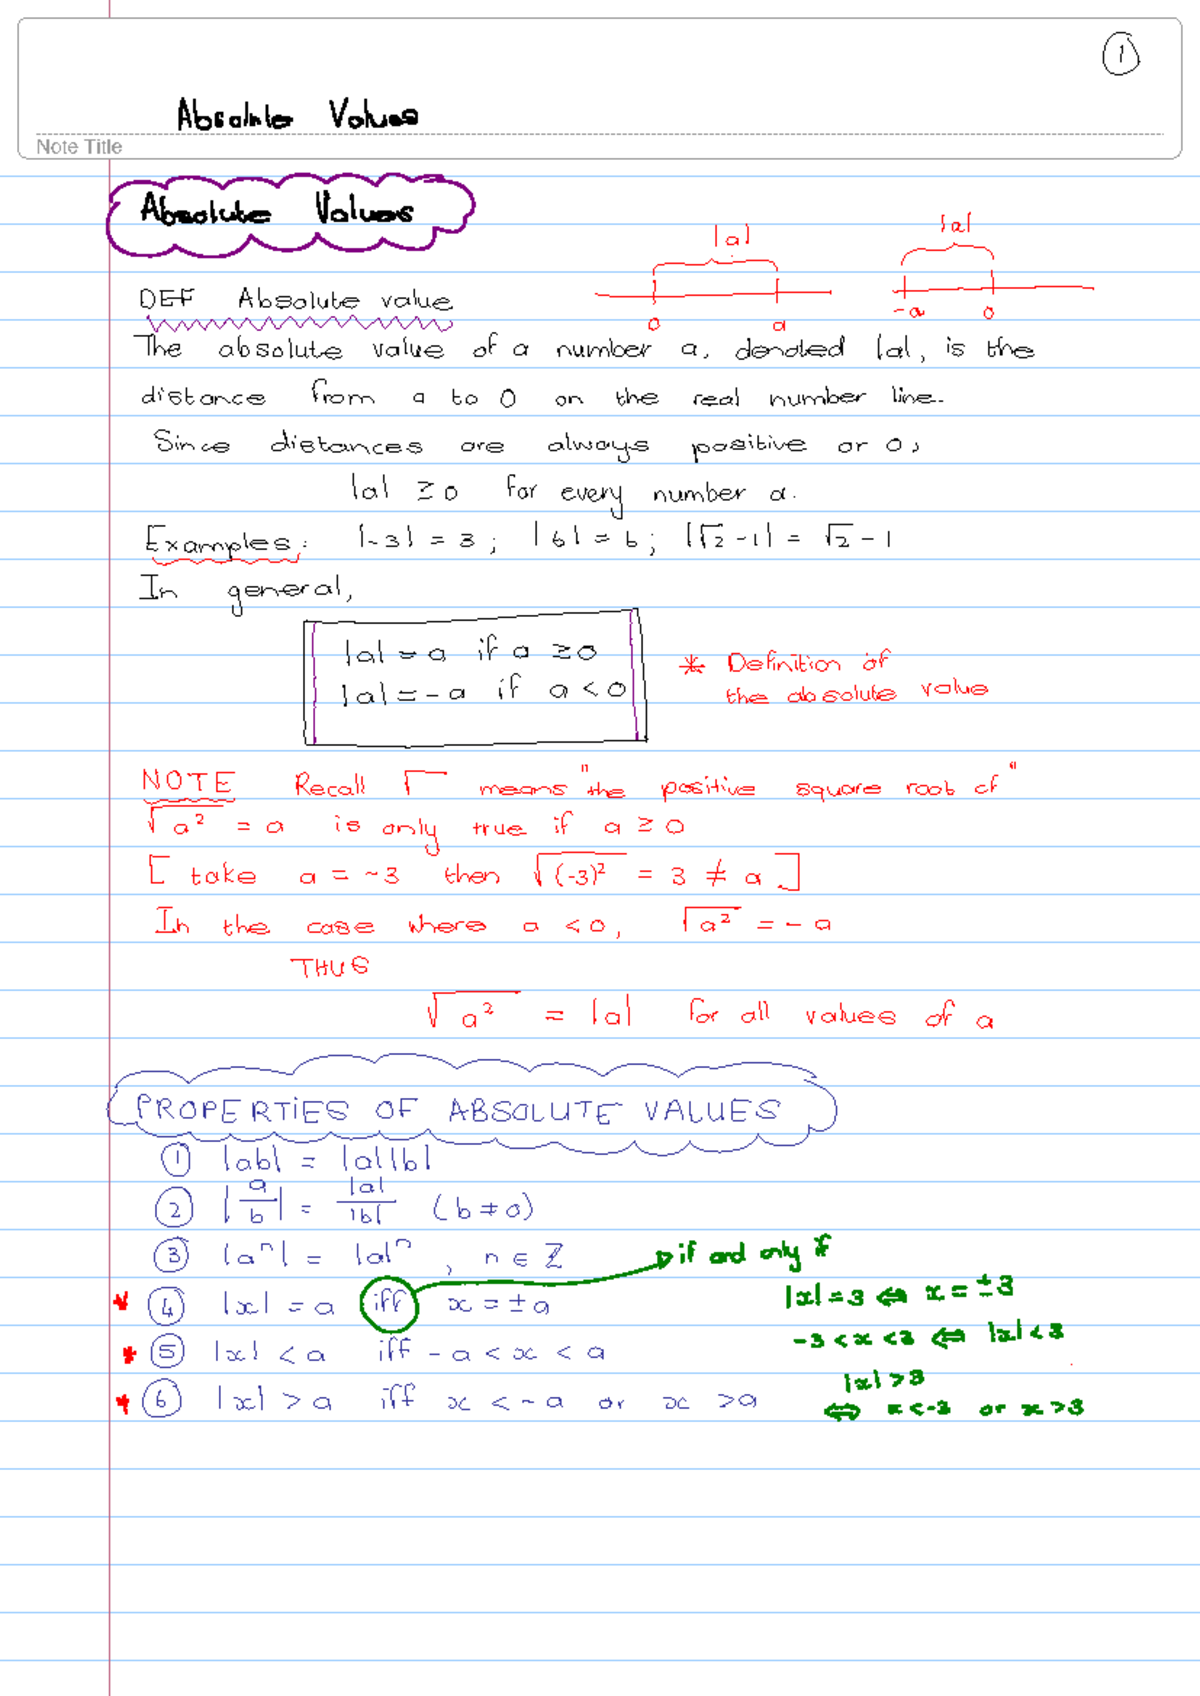 1
Absolute Values
Note Title
Absolute Values
|a| |a|
0 a -a 0
DEF Absolute value
The absolute value of a number a, denoted |a|, is the
distance from a to 0 on the real number line.
Since distances are always positive or 0,
|a| ≥ 0 for every number a.
Examples: |-3| = 3 ; |6| = 6 ; |√2 - 1| = √2 - 1
In general,
|a| = a if a ≥ 0
|a| = -a if a < 0
* Definition of
the absolute value
NOTE Recall √ means "the positive square root of"
√a² = a is only true if a ≥ 0
[ take a = -3 then √(-3)² = 3 ≠ a ]
In the case where a < 0, √a² = - a
THUS
√a² = |a| for all values of a
PROPERTIES OF ABSOLUTE VALUES
① |ab| = |a||b|
② |a/b| = |a|/|b| (b ≠ 0)
③ |aⁿ| = |a|ⁿ , n ∈ ℤ
if and only if
* ④ |x| = a iff x = ± a
|x| = 3 ⇔ x = ±3
* ⑤ |x| < a iff - a < x < a
-3 < x < 3 ⇔ |x| < 3
* ⑥ |x| > a iff x < - a or x > a
|x| > 3
⇔ x < -3 or x > 3